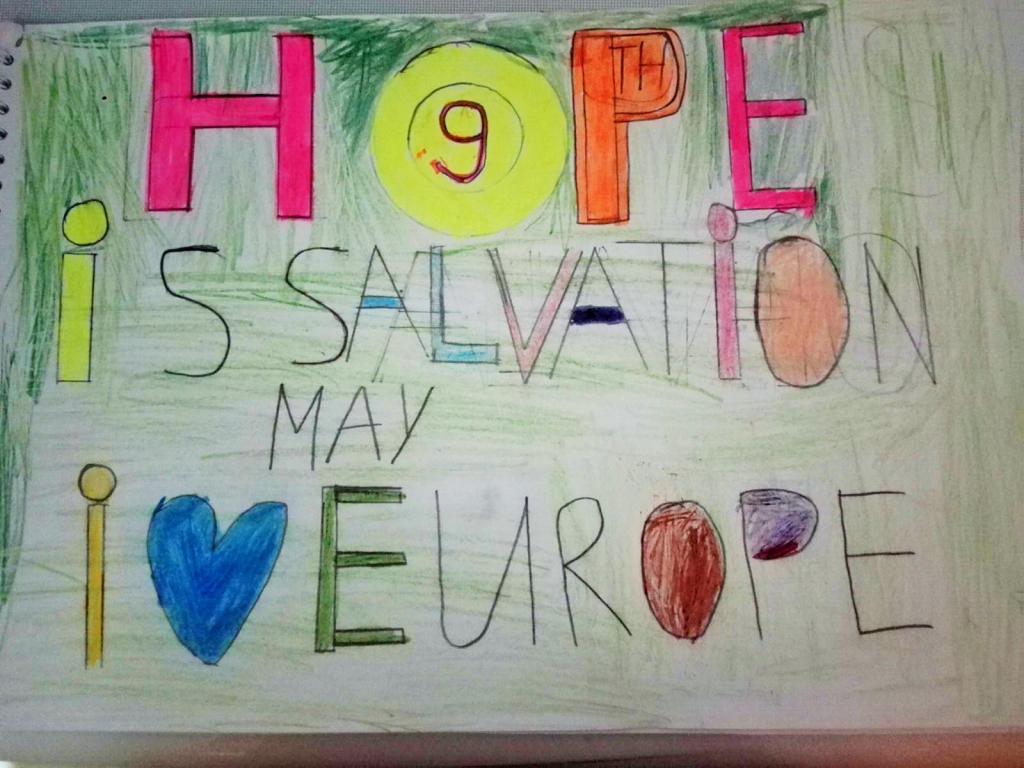 HOPE
9 TH
iS SALVATiON
MAY
i ♥ EUROPE